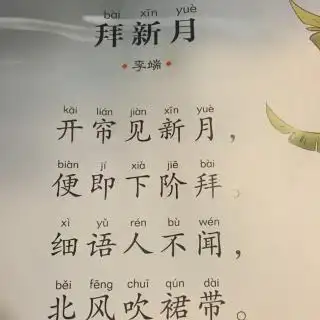 bài xīn yuè
拜新月
•李端•
kāi lián jiàn xīn yuè
开帘见新月，
biàn jí xià jiē bài
便即下阶拜。
xì yǔ rén bù wén
细语人不闻，
běi fēng chuī qún dài
北风吹裙带。